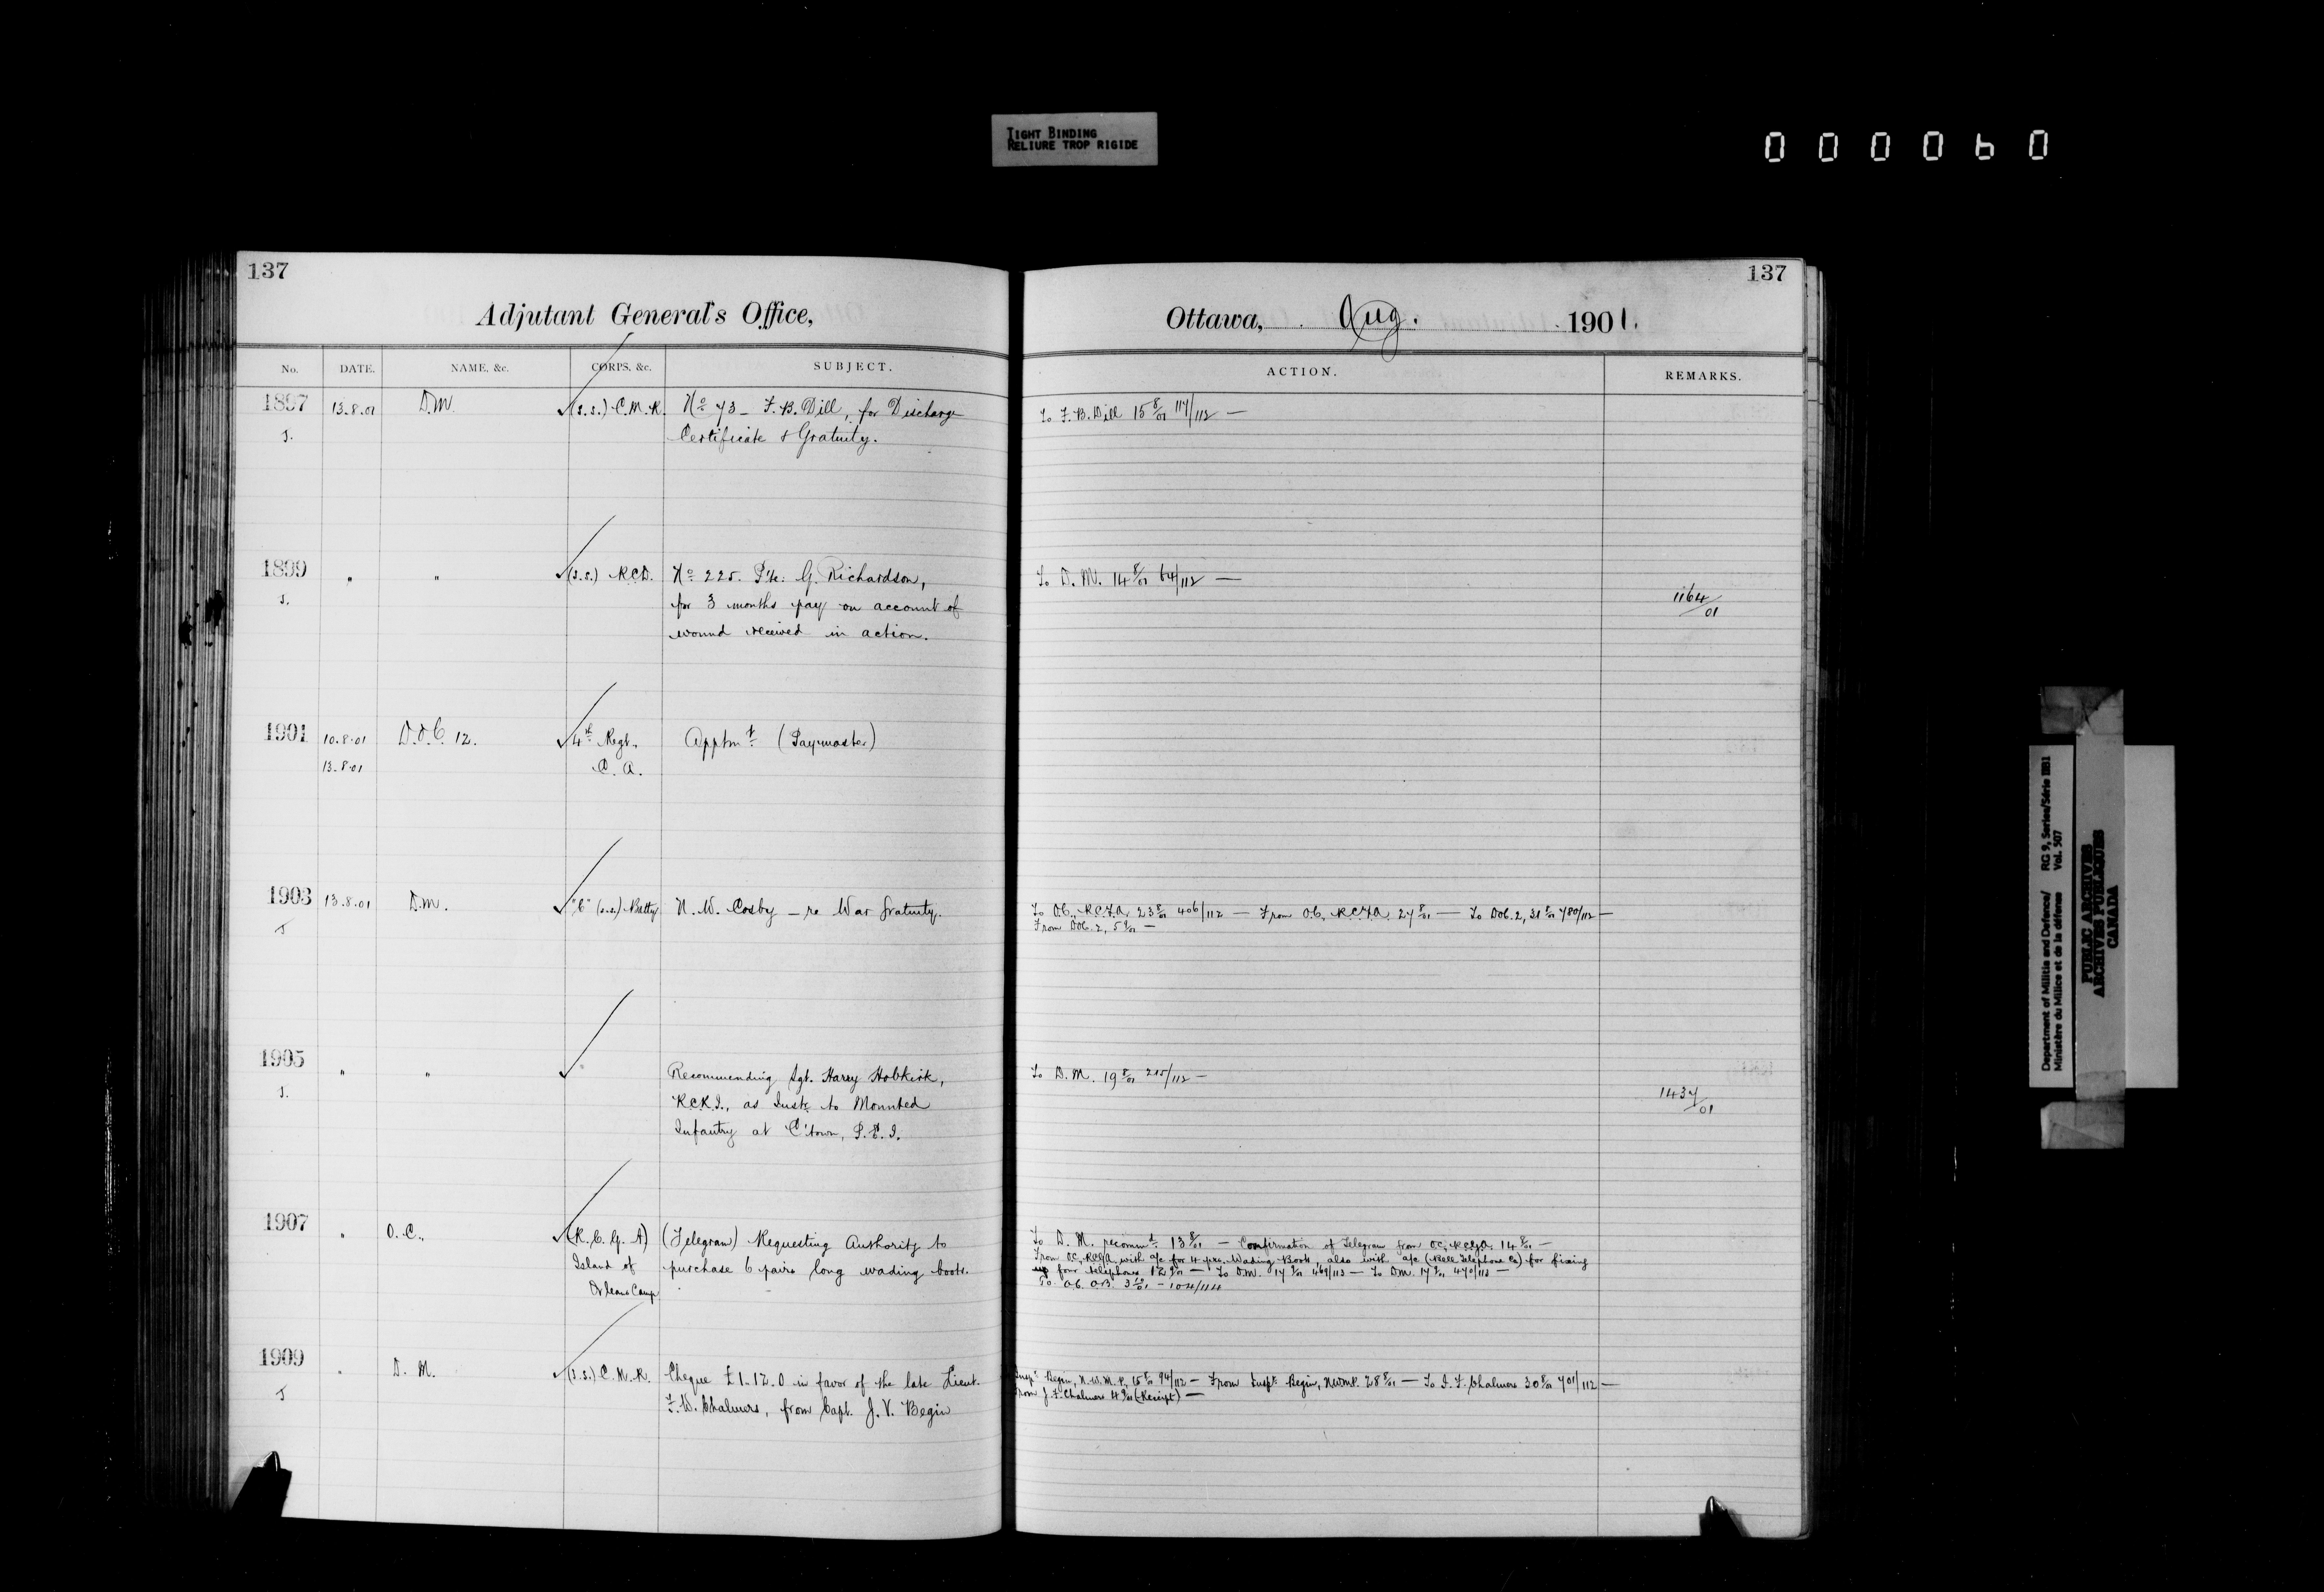 TIGHT BINDING
RELIURE TROP RIGIDE
000060
137
Adjutant General's Office,
No. DATE. NAME, &c. CORPS, &c. SUBJECT.
1897 13.8.01 D.M. (S.S.) C.M.R. No 73 – F.B. Dill, for Discharge
J. Certificate & Gratuity.
1899 " " (S.S.) R.C.D. No 225. Pte. G. Richardson,
J. for 3 months pay on account of
wound received in action.
1901 10.8.01 D.O.C. 12. 4th Regt. Apptmt (Paymaster)
13.8.01 C.A.
1903 13.8.01 D.M. "C" (S.S.) Batty N.W. Cosby – re War Gratuity.
J
1905 " " " Recommending Sgt. Harry Hobkirk,
J. R.C.R.I., as Instr. to Mounted
Infantry at C'town, P.E.I.
1907 " O.C., (R.C.G.A) (Telegram) Requesting Authority to
Island of purchase 6 pairs long wading boots.
Orleans Camp
1909 " D.M. (S.S.) C.M.R. Cheque £1.12.0 in favor of the late Lieut.
J F.W. Chalmers, from Capt. J.V. Begin
137
Ottawa, Aug. 1901.
ACTION. REMARKS.
To F.B. Dill 15 8/01 117/112 —
To D.M. 14 8/01 64/112 —
1164/01
To O.C., R.C.F.A. 23 8/01 406/112 — From O.C. R.C.F.A. 27 8/01 — To DOC. 2, 31 8/01 780/112 —
From DOC. 2, 5 9/01 —
To D.M. 19 8/01 215/112 —
1437/01
To D.M. recommd 13 8/01 — Confirmation of Telegram from O.C. R.C.G.A. 14 8/01 —
From O.C. R.C.G.A. with a/c for 4 prs. Wading Boots, also with a/c (Bell Telephone Co) for fixing
up four telephones 12 9/01 — To D.M. 17 9/01 469/113 — To D.M. 17 9/01 470/113 —
To O.C. 3 10/01 – 104/114
Inspr Begin, N.W.M.P. 15 8/01 94/112 — From Inspr Begin, N.W.M.P. 28 8/01 — To J.F. Chalmers 30 8/01 701/112 —
From J.F. Chalmers 4 9/01 (Receipt) —
Department of Militia and Defence/ RG 9, Series/Série IIB1
Ministère du Milice et de la défense Vol. 507
PUBLIC ARCHIVES
ARCHIVES PUBLIQUES
CANADA